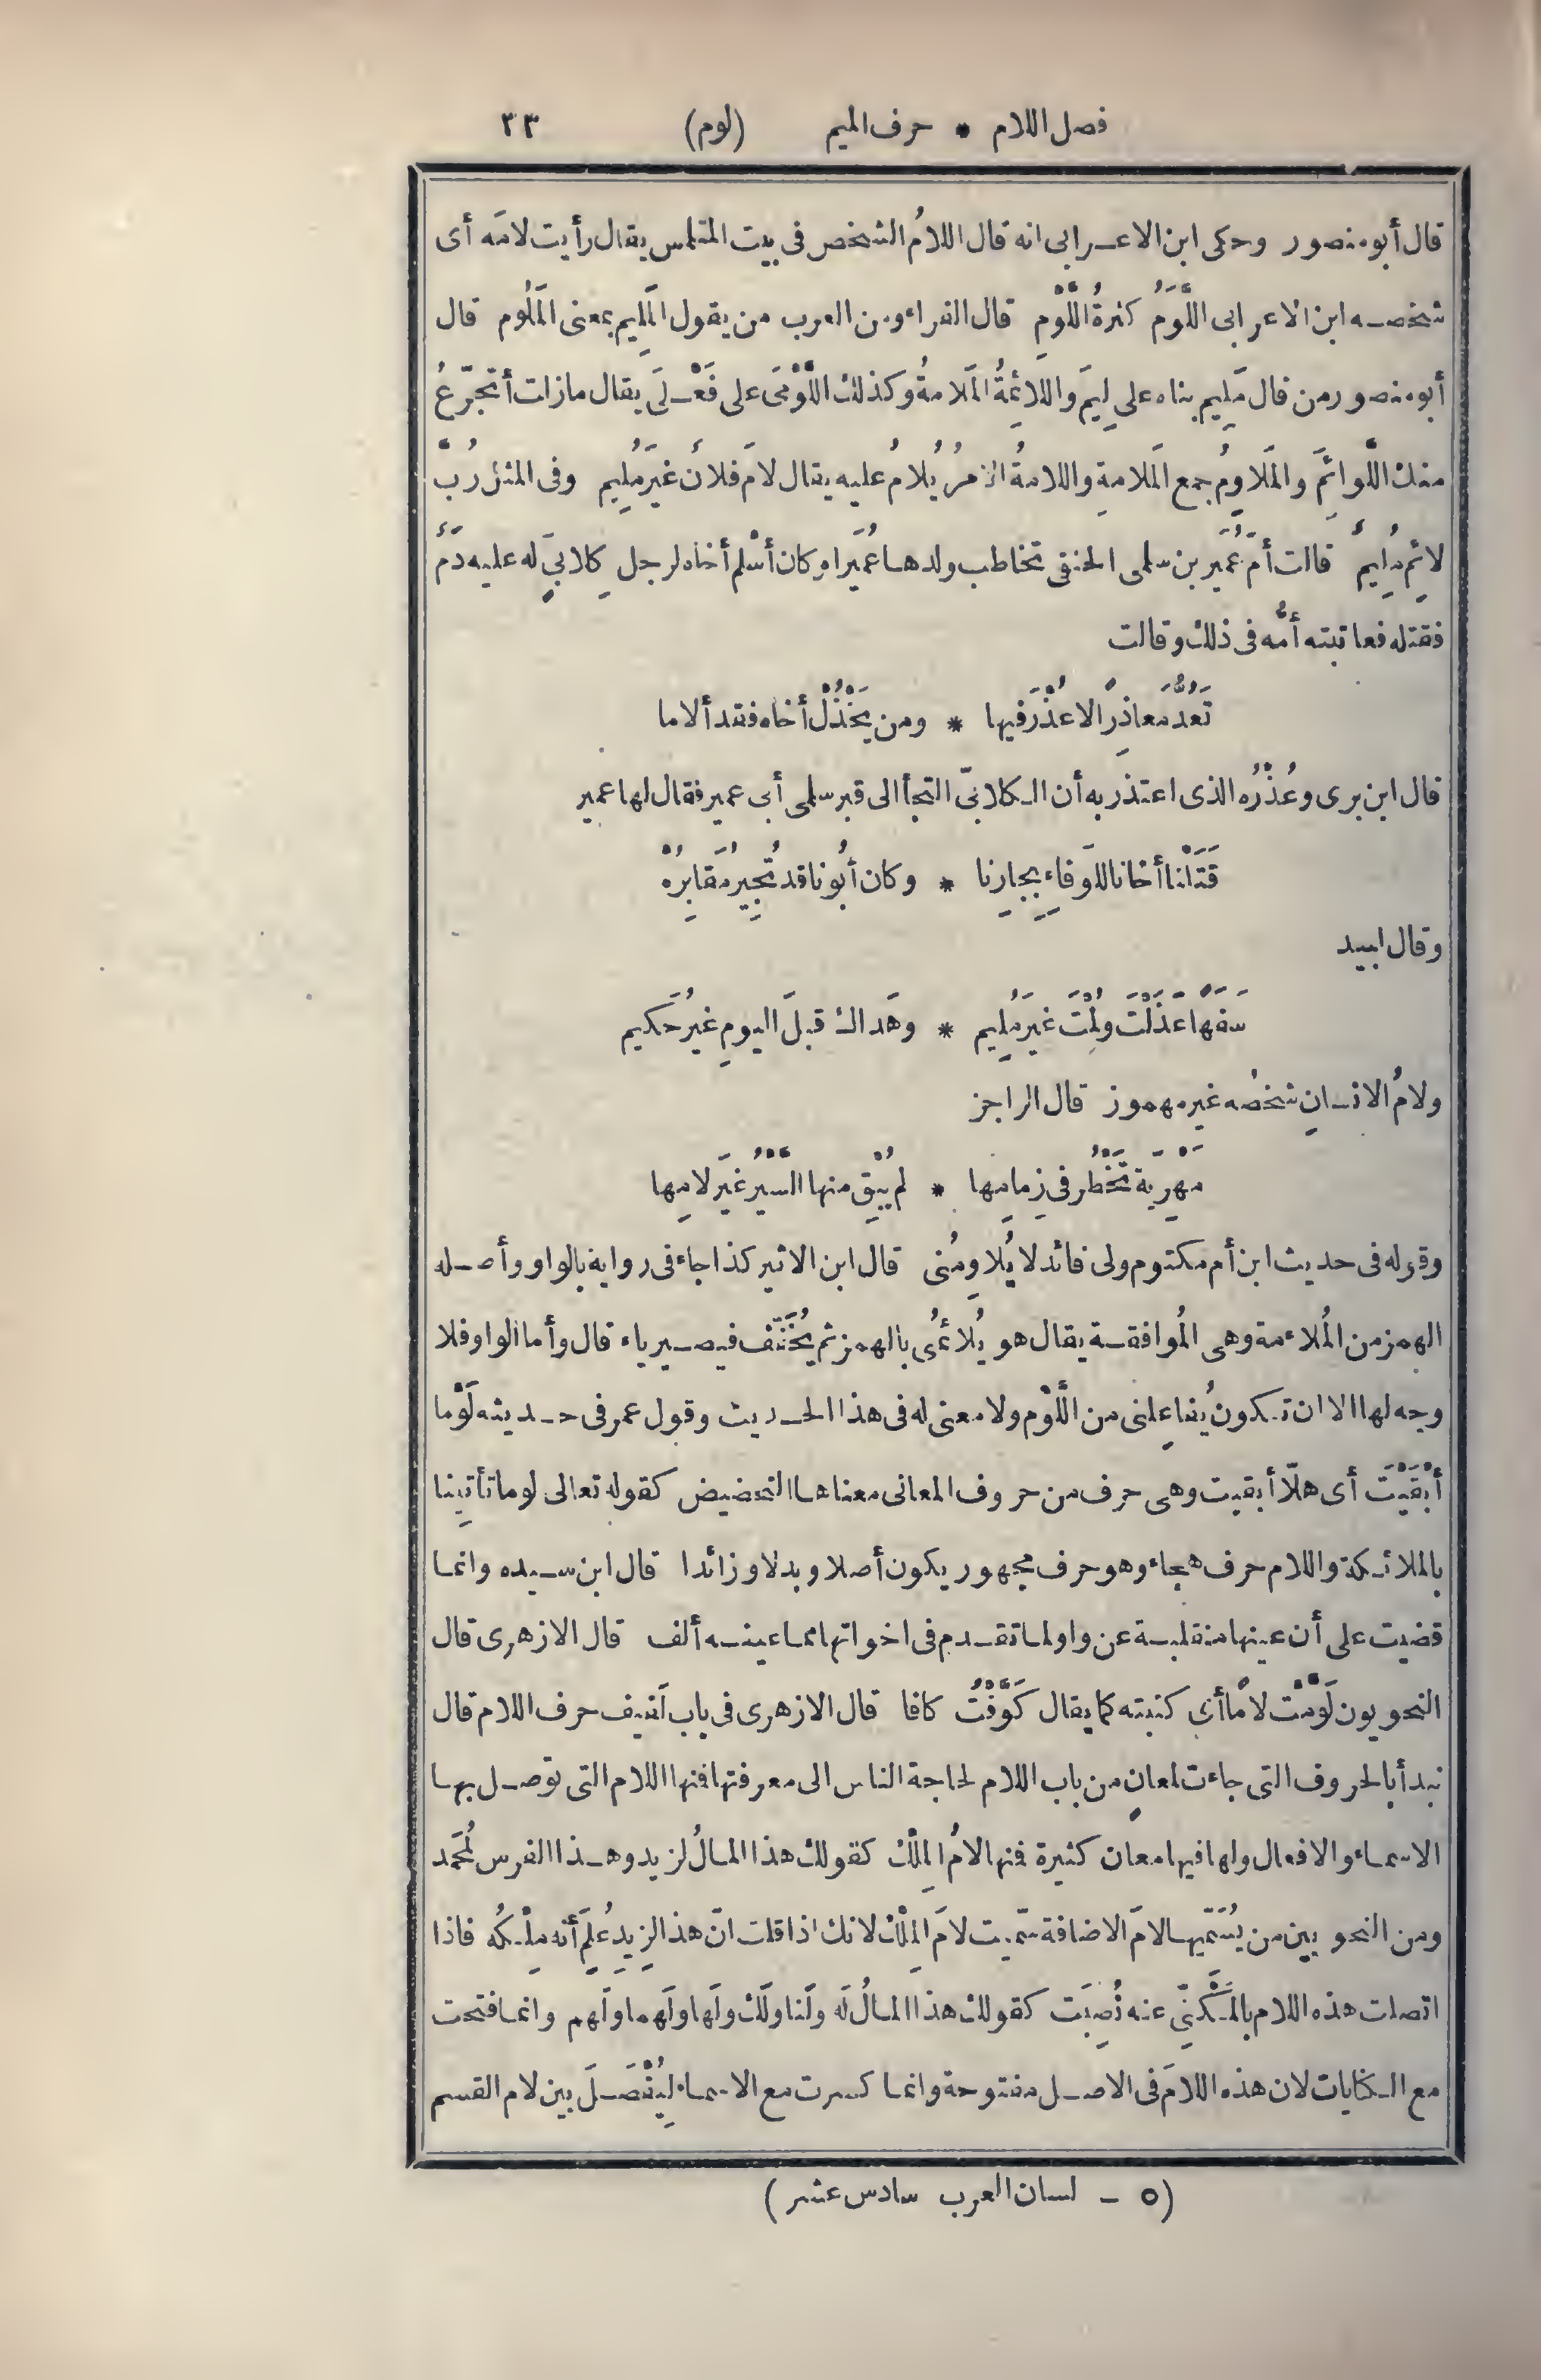 فصل اللام * حرف الميم (لوم) ٣٣
قال أبو منصور وحكى ابن الاعرابى انه قال اللامُ الشخص فى بيت المتلمس يقال رأيت لامَه أى
شخصه ابن الاعرابى اللَّوَمُ كثرةُ اللَّوْمِ قال الفراء ومن العرب من يقول المَلِيم بمعنى المَلُوم قال
أبو منصور من قال مَلِيم بناه على لِيمَ واللائِمةُ المَلامةُ وكذلك اللَّوْمَى على فَعْلَى يقال مازلت أتَجَرّعُ
منك اللَّوائِمَ والمَلاوِمُ جمع المَلامةِ واللامةُ الأمرُ يُلامُ عليه يقال لامَ فلانٌ غيرَ مُلِيم وفى المثل رُبَّ
لائِمٍ مُلِيمٌ قالت أمّ عُمَير بن سلمى الحنفى تخاطب ولدها عُمَيرا وكان أسْلم أخاه لرجل كِلابىٍّ له عليه دَمٌ
فقتله فعاتبته أمُّه فى ذلك وقالت
تَعُدُّ مَعاذِرًا لاعُذْرَ فيها * ومن يَخْذُلْ أخاه فقد ألاما
قال ابن برى وعُذْرُه الذى اعتذر به أن الكلابىّ التجأ الى قبر سلمى أبى عمير فقال لها عمير
قَتَلْنا أخانا للوَفاءِ بجِارِنا * وكان أبُونا قد تُجِيرُ مَقابِرُهْ
وقال لبيد
سَفَهًا عَذَلْتَ ولُمْتَ غيرَ مُلِيم * وهَداك قبلَ اليومِ غيرُ حَكيم
ولامُ الانسانِ شخصُه غير مهموز قال الراجز
مَهْرِيّة تَخْطُر فى زِمامِها * لم يُبْقِ منها السَّيْرُ غيرَ لامِها
وقوله فى حديث ابن أم مكتوم ولى قائد لا يُلاوِمُنى قال ابن الاثير كذا جاء فى رواية بالواو وأصله
الهمز من المُلاءمة وهى المُوافقة يقال هو يُلائمُنى بالهمز ثم يُخَفَّف فيصير ياء قال وأما الواو فلا
وجه لها الا ان تكون يُفاعِلنى من اللَّوْم ولا معنى له فى هذا الحديث وقول عمر فى حديثه لَوْما
أبْقَيْتَ أى هلّا أبقيت وهى حرف من حروف المعانى معناها التحضيض كقوله تعالى لوما تأتِينا
بالملائكة واللام حرف هجاء وهو حرف مجهور يكون أصلا وبدلا وزائدا قال ابن سيده وانما
قضيت على أن عينها منقلبة عن واو لما تقدم فى اخواتها مما عينه ألف قال الازهرى قال
النحويون لَوَّمْت لامًا أى كتبته كما يقال كَوَّفْتُ كافا قال الازهرى فى باب لَفيف حرف اللام قال
نبدأ بالحروف التى جاءت لمعانٍ من باب اللام لحاجة الناس الى معرفتها فنها اللام التى توصل بها
الاسماء والافعال ولها فيها معان كثيرة فنها لامُ المِلْك كقولك هذا المالُ لزيد وهذا الفرس لمُحَمد
ومن النحويين من يُسَمّيها لامَ الاضافة سمّيت لامَ المِلْك لانك اذا قلت انّ هذا لِزيدٍ عُلِمَ أنه مِلْكُه فاذا
اتصلت هذه اللام بالمَكْنِىِّ عنه نُصِبَت كقولك هذا المالُ لَه ولَنا ولَك ولَها ولَهما ولَهم وانما فتحت
مع الكنايات لان هذه اللامَ فى الاصل مفتوحة وانما كسرت مع الاسماء ليُفْصَلَ بين لام القسم
(٥ - لسان العرب سادس عشر)